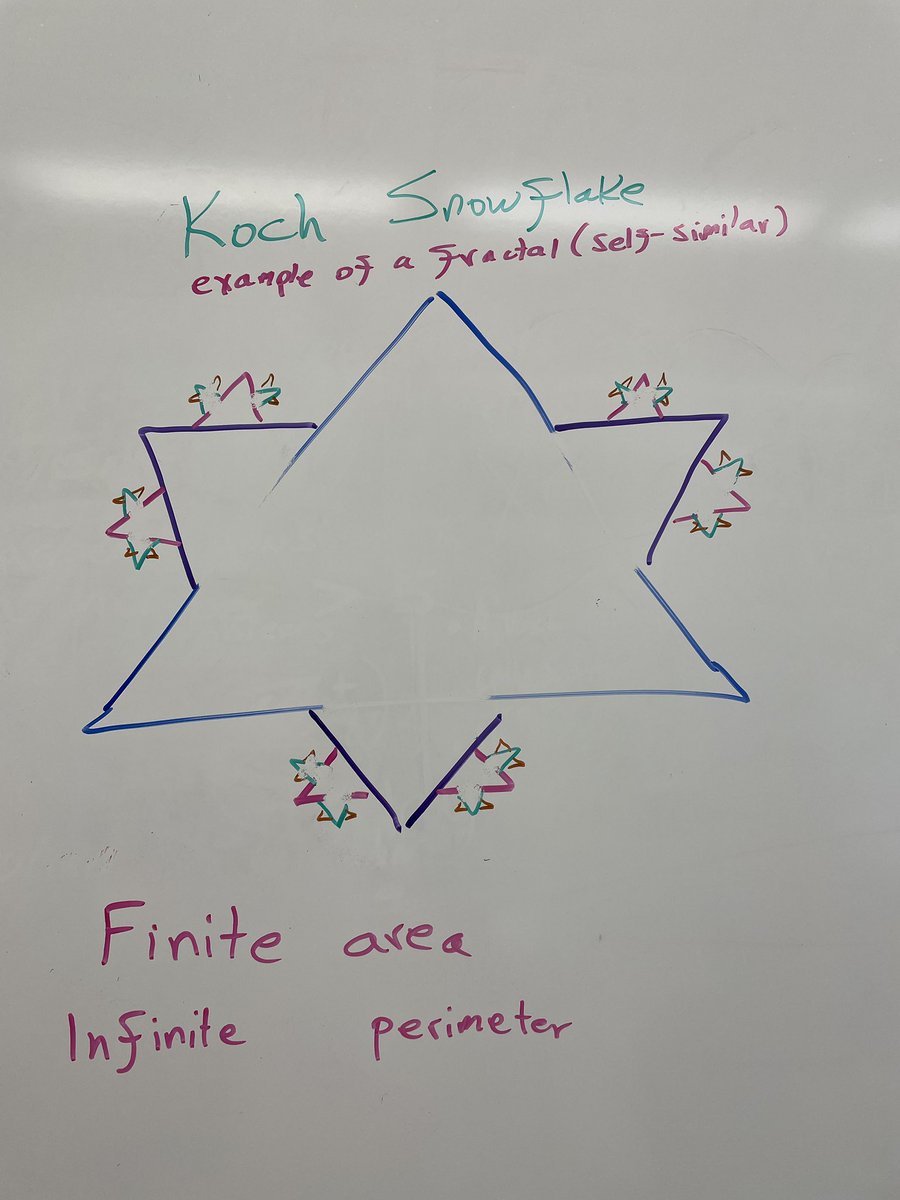 Koch Snowflake
example of a fractal (self-similar)
Finite area
Infinite perimeter